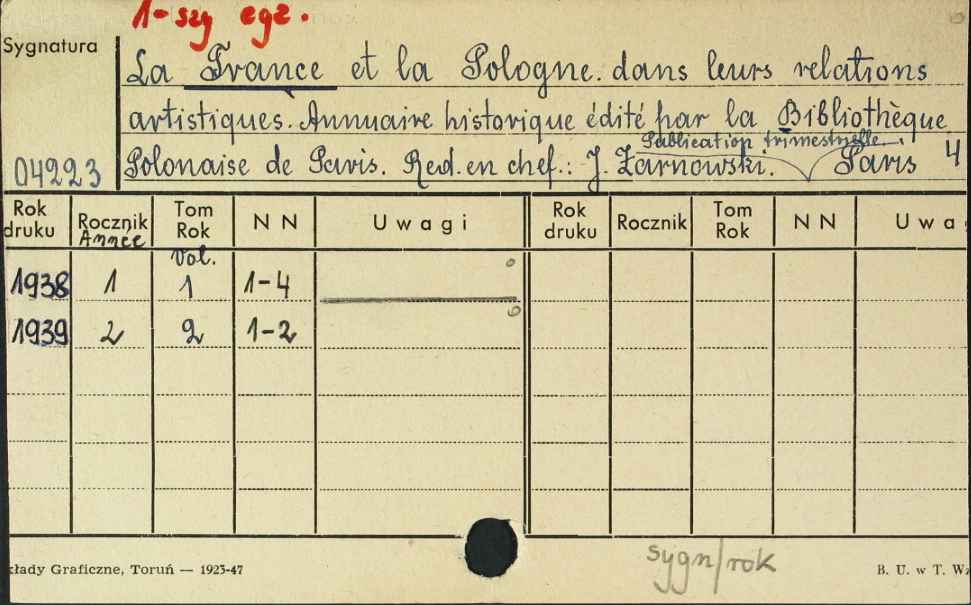 1-szy egz.
Sygnatura
La France et la Pologne. dans leurs relations
artistiques. Annuaire historique édité par la Bibliothèque
Publication trimestrielle.
04223 Polonaise de Paris. Red. en chef.: J. Żarnowski. Paris 4
Rok druku Rocznik Année Tom Rok Vol. N N Uwagi Rok druku Rocznik Tom Rok N N Uwag
1938 1 1 1-4
1939 2 2 1-2
sygn/rok
kłady Graficzne, Toruń — 1923-47 B. U. w T. Wz